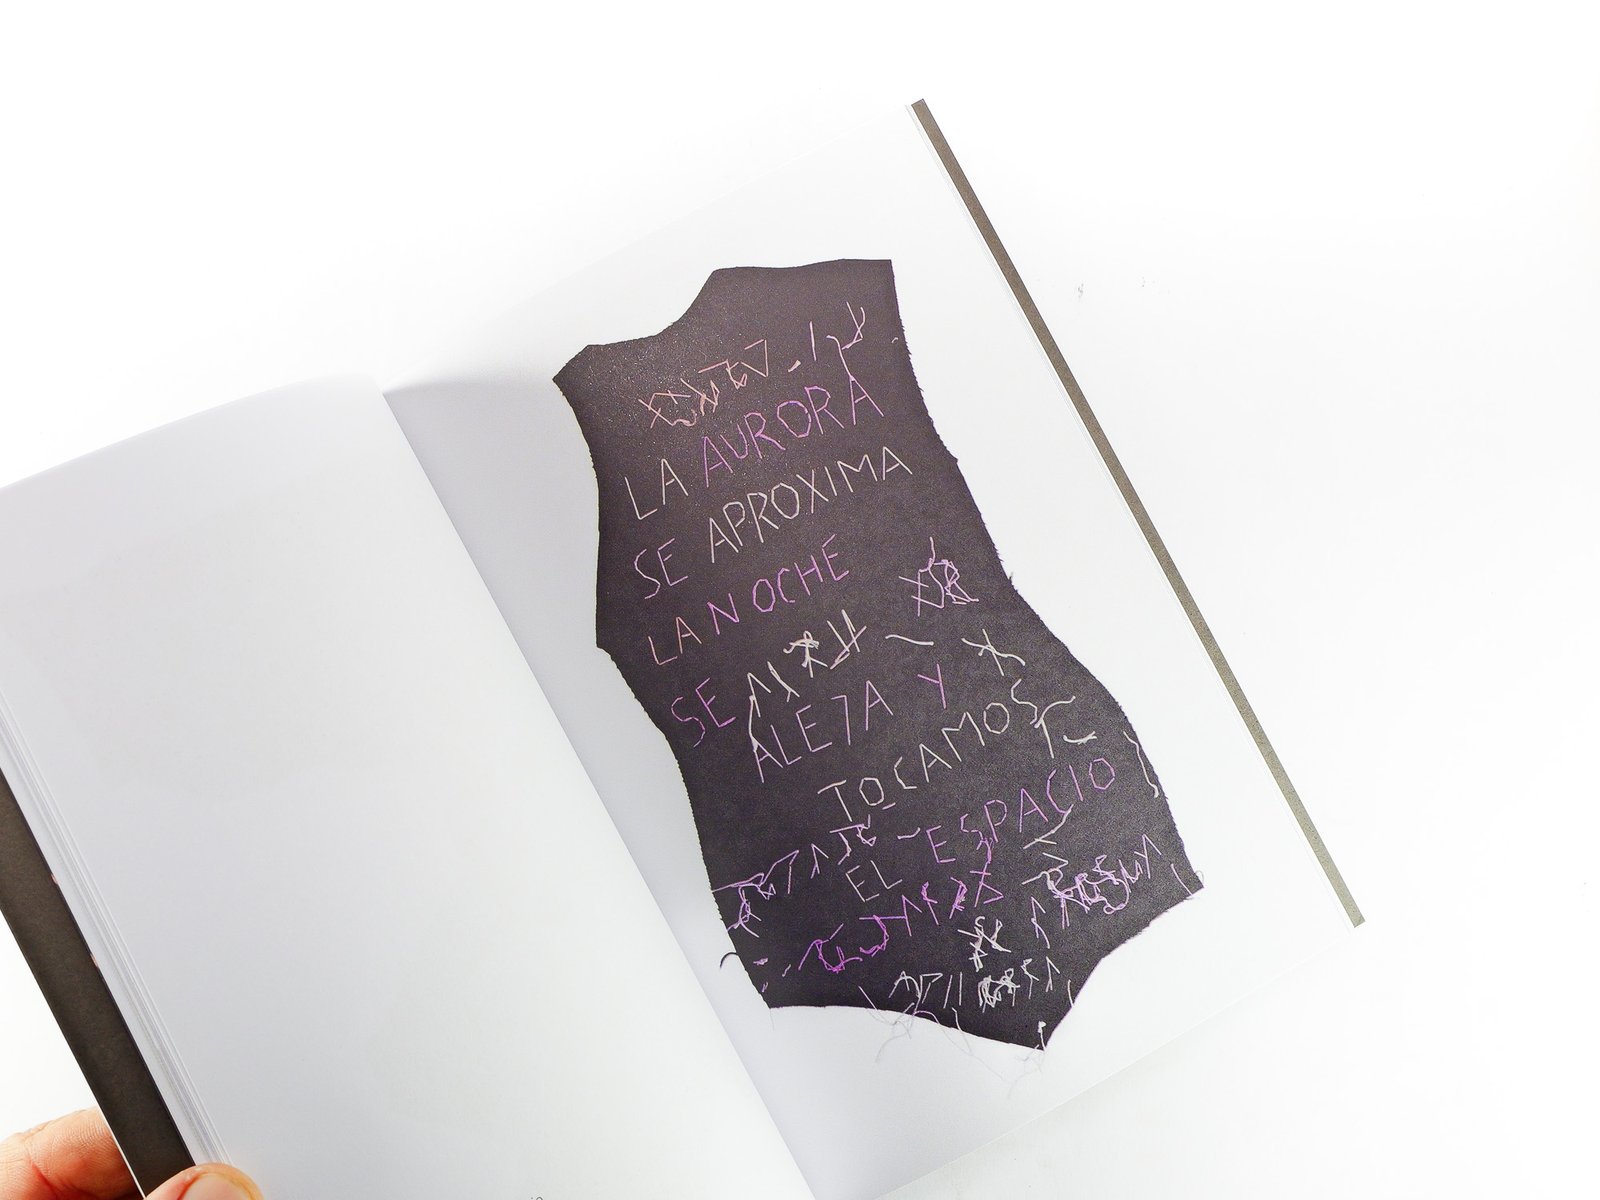 LA AURORA
SE APROXIMA
LA NOCHE
SE
ALEJA Y
TOCAMOS
EL ESPACIO